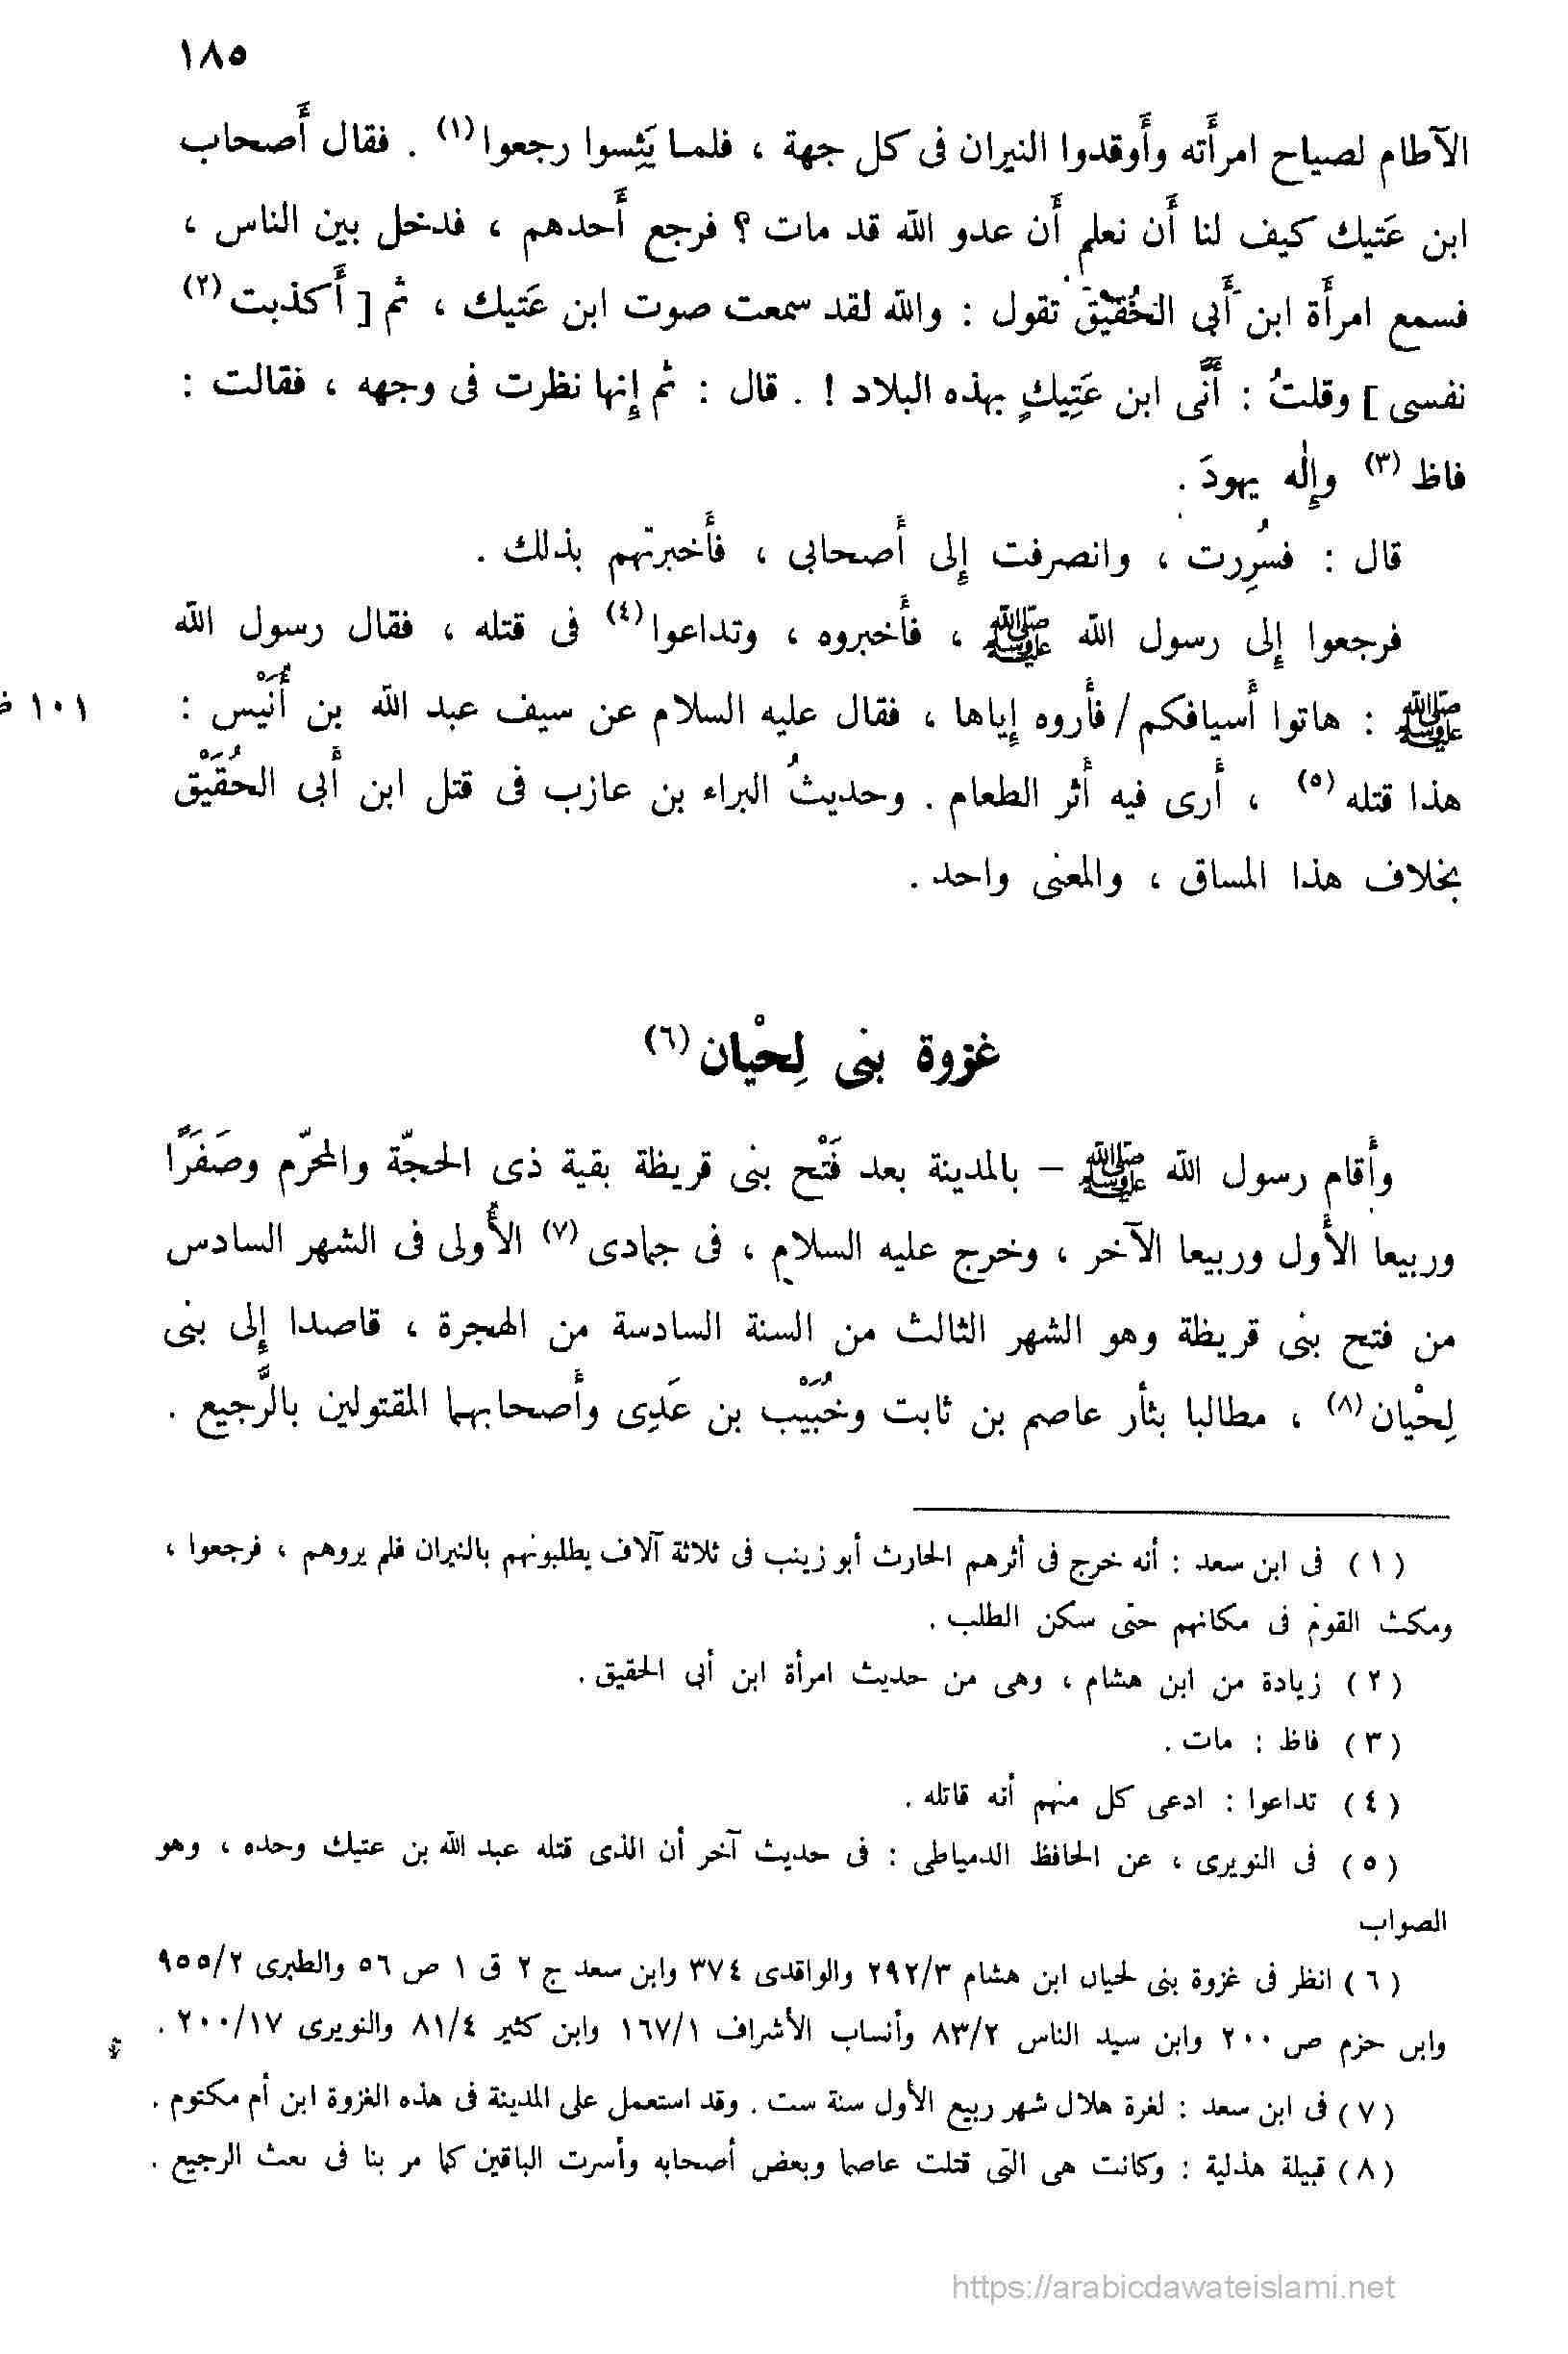 ١٨٥
الآطام لصياح امرأَته وأَوقدوا النيران فى كل جهة ، فلمـا يَئِسوا رجعوا(١) . فقال أَصحاب
ابن عَتيك كيف لنا أَن نعلم أَن عدو الله قد مات ؟ فرجع أَحدهم ، فدخل بين الناس ،
فسمع امرأَة ابن أَبى الحُقَيْق تقول : والله لقد سمعت صوت ابن عَتيك ، ثم [ أَكذبت(٢)
نفسى ] وقلتُ : أَنَّى ابن عَتِيكٍ بهذه البلاد ! . قال : ثم إِنها نظرت فى وجهه ، فقالت :
فاظ(٣) وإِلٰه يهودَ .
قال : فسُرِرت ، وانصرفت إِلى أَصحابى ، فأَخبرتهم بذلك .
فرجعوا إِلى رسول الله ﷺ ، فأَخبروه ، وتداعوا(٤) فى قتله ، فقال رسول الله
ﷺ : هاتوا أَسيافكم / فأَروه إِياها ، فقال عليه السلام عن سيف عبد الله بن أُنَيْس : ١٠١
هذا قتله(٥) ، أَرى فيه أَثر الطعام . وحديثُ البراء بن عازب فى قتل ابن أَبى الحُقَيْق
بخلاف هذا المساق ، والمعنى واحد .
غزوة بنى لِحْيان(٦)
وأَقام رسول الله ﷺ – بالمدينة بعد فَتْح بنى قريظة بقية ذى الحجّة والمحرّم وصَفَرًا
وربيعا الأَول وربيعا الآخر ، وخرج عليه السلام ، فى جمادى(٧) الأُولى فى الشهر السادس
من فتح بنى قريظة وهو الشهر الثالث من السنة السادسة من الهجرة ، قاصدا إِلى بنى
لِحْيان(٨) ، مطالبا بثأر عاصم بن ثابت وخُبَيْب بن عَدِى وأَصحابهما المقتولين بالرَّجيع .
( ١ ) فى ابن سعد : أنه خرج فى أثرهم الحارث أبو زينب فى ثلاثة آلاف يطلبونهم بالنيران فلم يروهم ، فرجعوا ،
ومكث القوم فى مكانهم حتى سكن الطلب .
( ٢ ) زيادة من ابن هشام ، وهى من حديث امرأة ابن أبى الحقيق .
( ٣ ) فاظ : مات .
( ٤ ) تداعوا : ادعى كل منهم أنه قاتله .
( ٥ ) فى النويرى ، عن الحافظ الدمياطى : فى حديث آخر أن الذى قتله عبد الله بن عتيك وحده ، وهو
الصواب
( ٦ ) انظر فى غزوة بنى لحيان ابن هشام ٢٩٢/٣ والواقدى ٣٧٤ وابن سعد ج ٢ ق ١ ص ٥٦ والطبرى ٩٥٥/٢
وابن حزم ص ٢٠٠ وابن سيد الناس ٨٣/٢ وأنساب الأشراف ١٦٧/١ وابن كثير ٨١/٤ والنويرى ٢٠٠/١٧ .
( ٧ ) فى ابن سعد : لغرة هلال شهر ربيع الأول سنة ست . وقد استعمل على المدينة فى هذه الغزوة ابن أم مكتوم .
( ٨ ) قبيلة هذلية : وكانت هى التى قتلت عاصما وبعض أصحابه وأسرت الباقين كما مر بنا فى بعث الرجيع .
https://arabicdawateislami.net